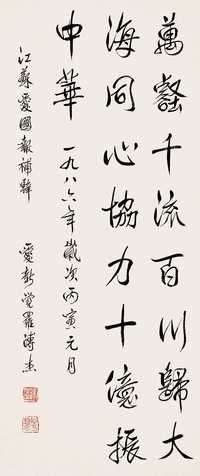 萬壑千流百川歸大
海同心協力十億振
中華
一九八六年歲次丙寅元月
江蘇愛國報補韓
愛新覺羅溥杰